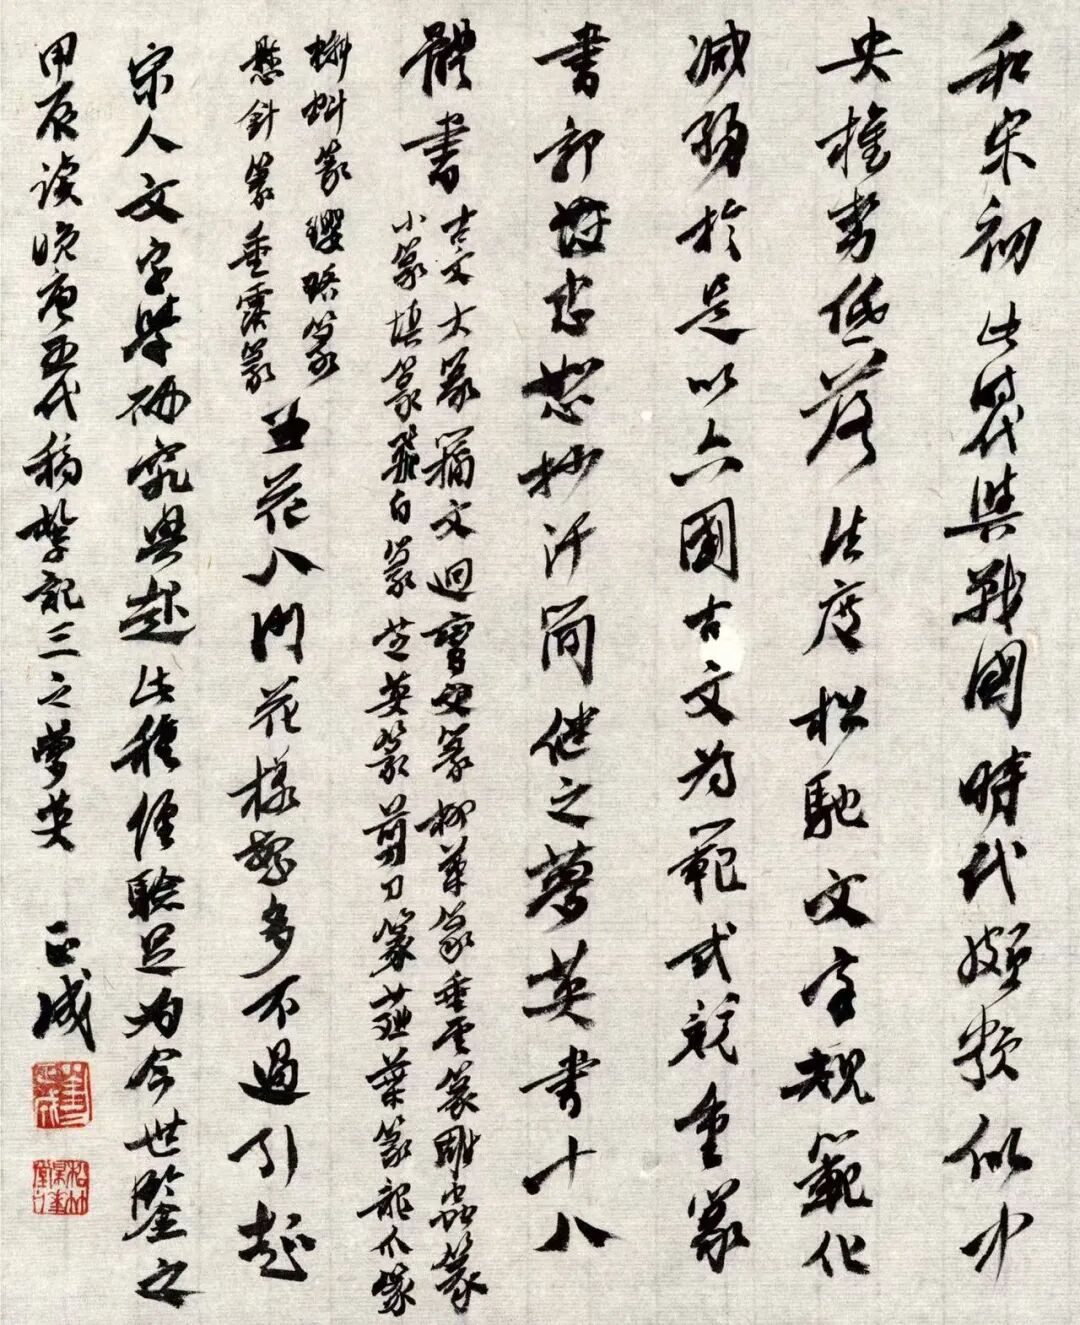 和宋初此时代與戰國時代頗類似中
央權勢低落法度松馳文字規範化
減弱於是以六國古文为範式競重篆
書郭忠恕抄汗简継之夢英書十八
體書
古文大篆籀文迴鸞篆柳葉篆垂雲篆雕蟲篆
小篆填篆飛白篆芝英篆剪刀篆薤葉篆龍爪篆
蝌蚪篆瓔珞篆
懸針篆垂露篆
五花八門花樣极多不過引起
宋人文字學研究興起此種经驗足为今世鑒之
甲辰读晚唐五代稿摯記三之夢英 正成